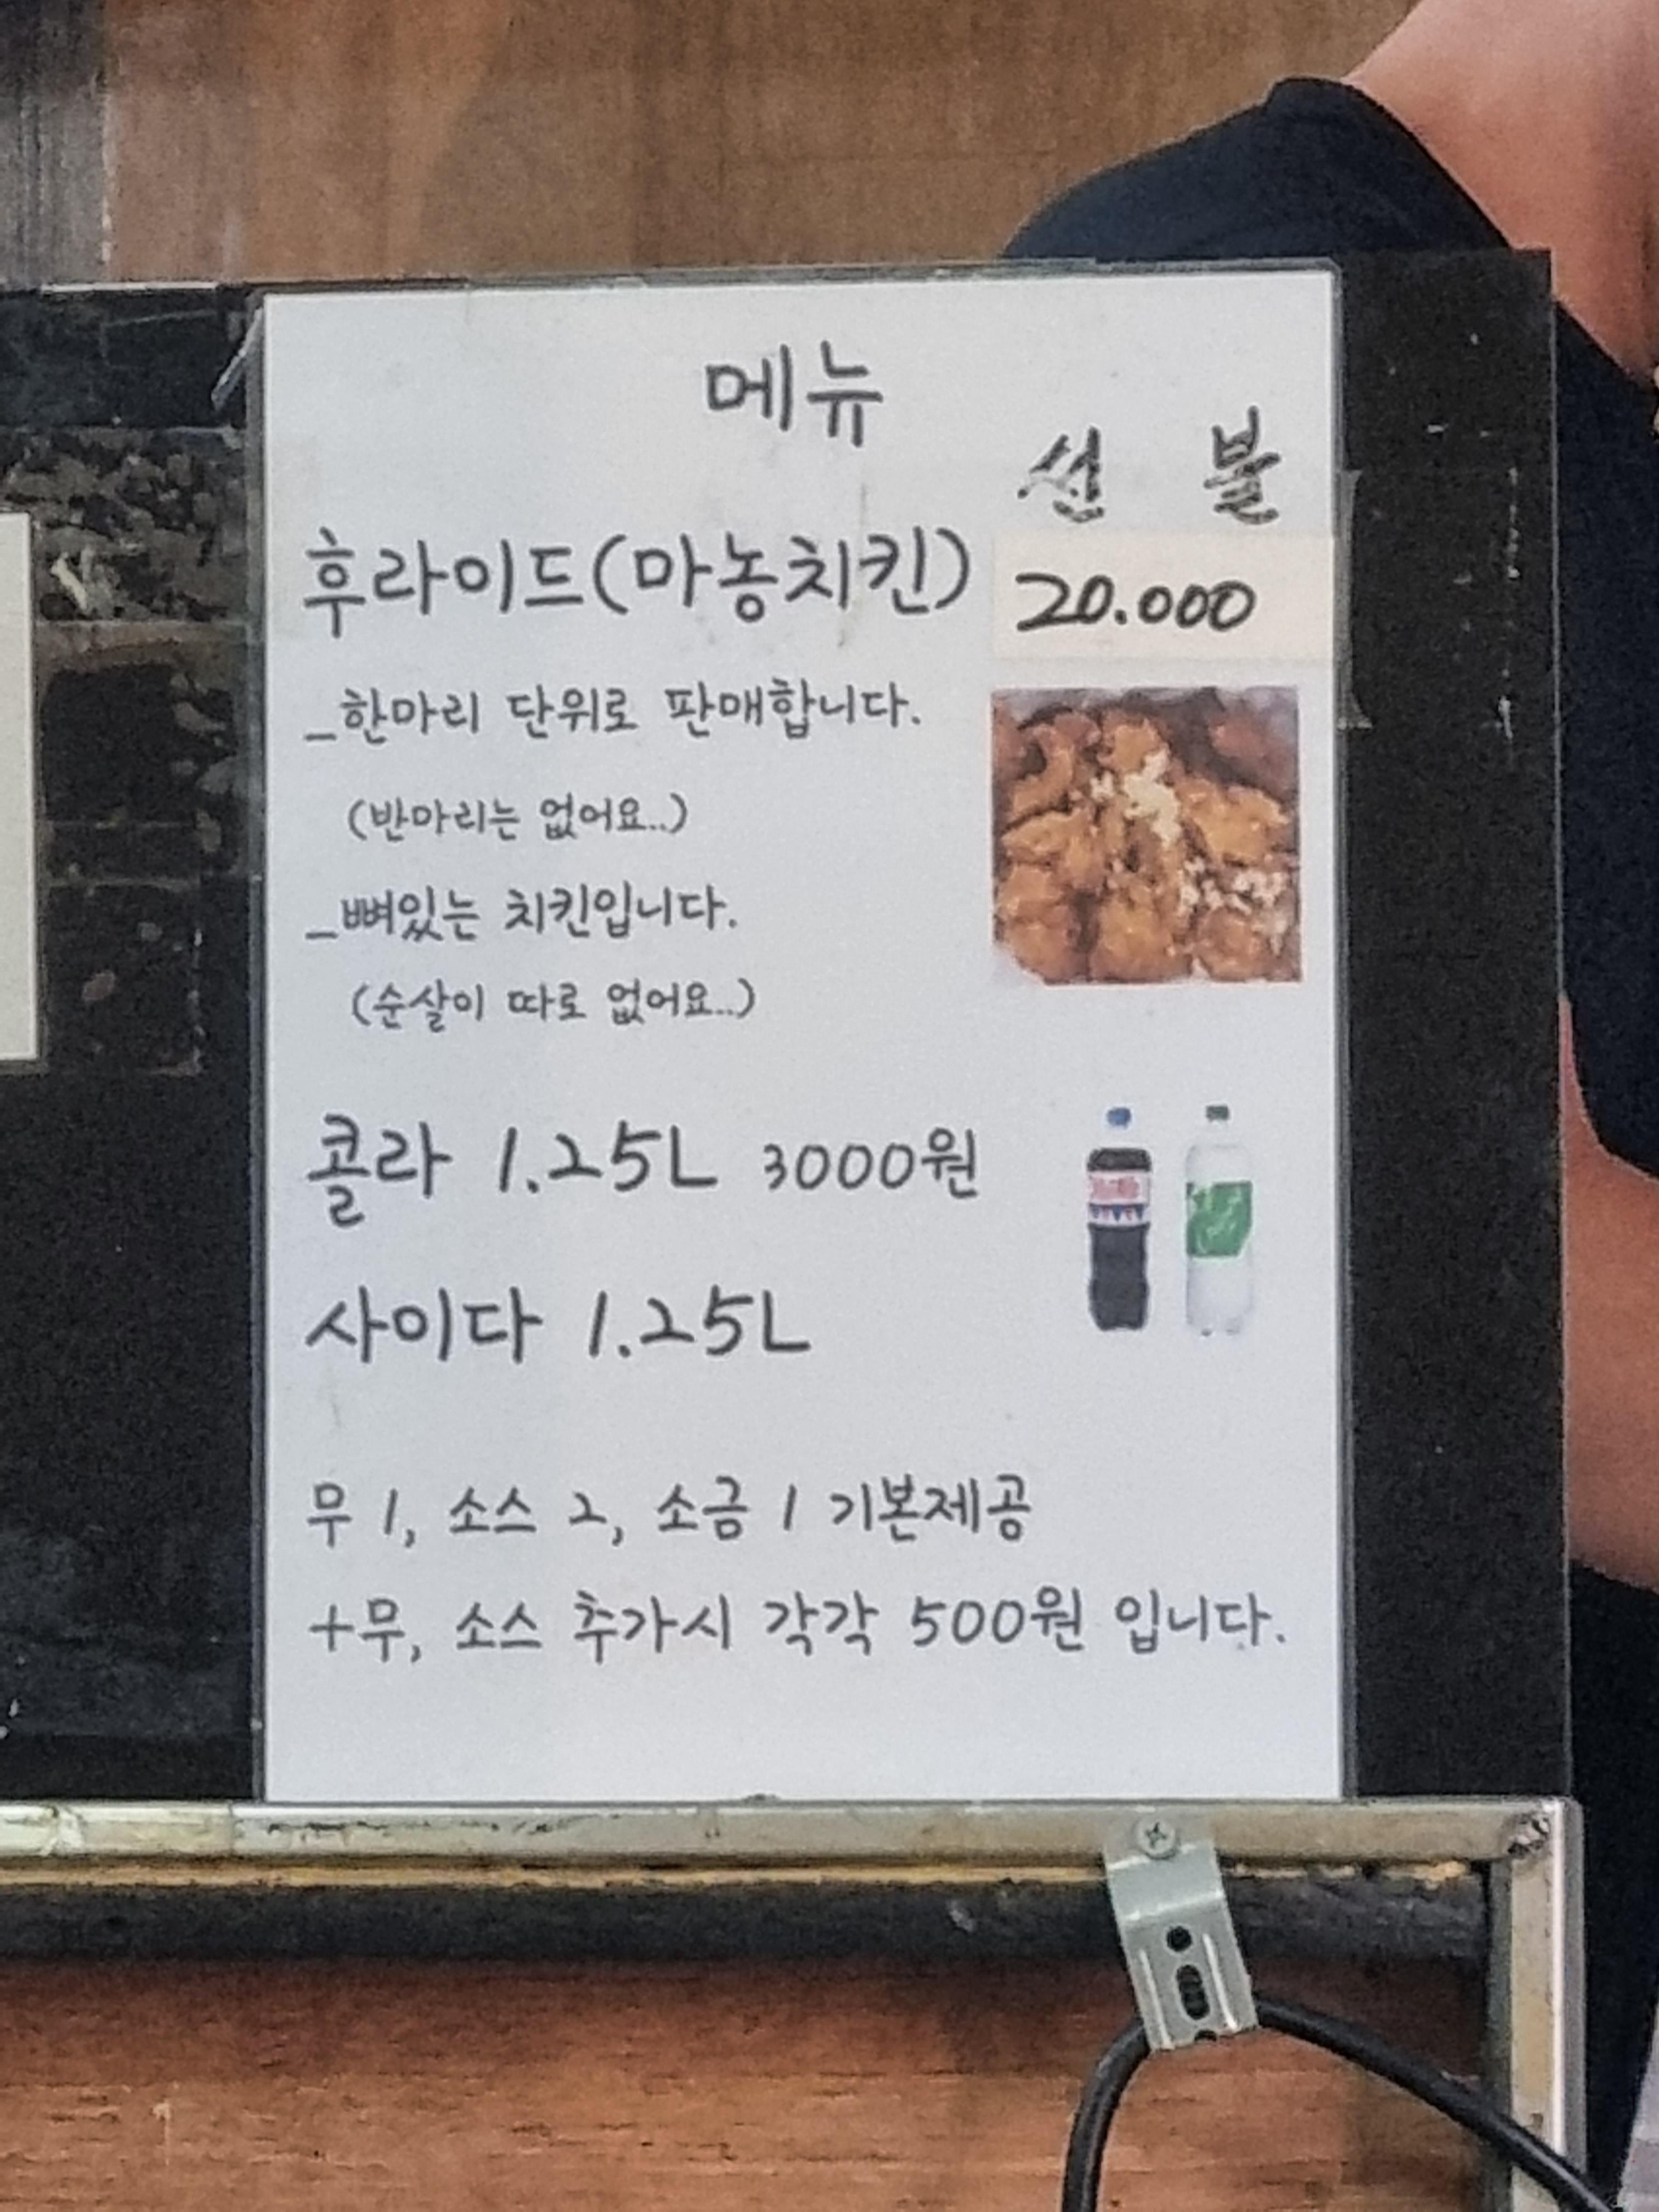 메뉴
선 불
후라이드(마농치킨) 20.000
_한마리 단위로 판매합니다.
(반마리는 없어요..)
_뼈있는 치킨입니다.
(순살이 따로 없어요..)
콜라 1.25L 3000원
사이다 1.25L
무 1, 소스 2, 소금 1 기본제공
+무, 소스 추가시 각각 500원 입니다.